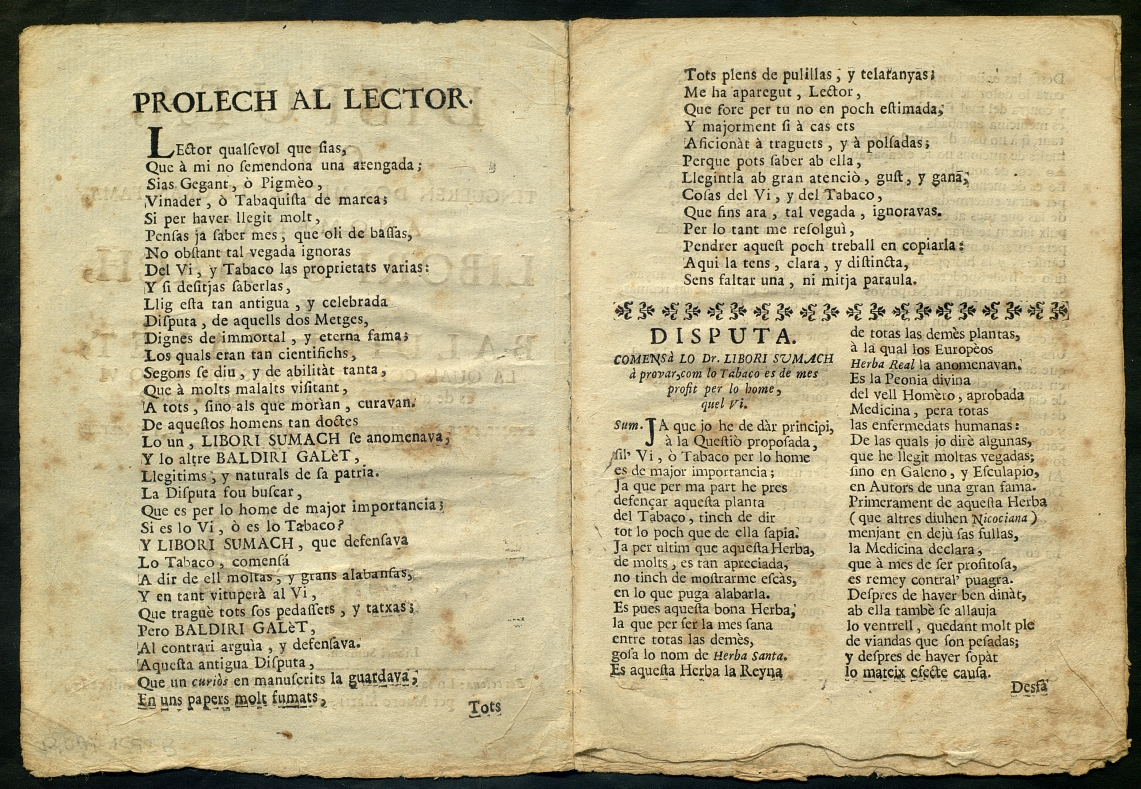 PROLECH AL LECTOR.
LEctor qualsevol que sias,
Que à mi no semendona una arengada;
Sias Gegant, ò Pigmèo,
Vinader, ò Tabaquista de marca;
Si per haver llegit molt,
Pensas ja saber mes, que oli de bassas,
No obstant tal vegada ignoras
Del Vi, y Tabaco las proprietats varias:
Y si desitjas saberlas,
Llig esta tan antigua, y celebrada
Disputa, de aquells dos Metges,
Dignes de immortal, y eterna fama;
Los quals eran tan cientifichs,
Segons se diu, y de abilitàt tanta,
Que à molts malalts visitant,
A tots, sino als que morìan, curavan.
De aquestos homens tan doctes
Lo un, LIBORI SUMACH se anomenava;
Y lo altre BALDIRI GALèT,
Llegitims, y naturals de sa patria.
La Disputa fou buscar,
Que es per lo home de major importancia;
Si es lo Vi, ò es lo Tabaco?
Y LIBORI SUMACH, que defensava
Lo Tabaco, comensá
A dir de ell moltas, y grans alabansas,
Y en tant vituperà al Vi,
Que traguè tots sos pedassets, y tatxas;
Pero BALDIRI GALèT,
Al contrari arguìa, y defensava.
Aquesta antigua Disputa,
Que un curiòs en manuscrits la guardava;
En uns papers molt fumats,
Tots
Tots plens de pulillas, y telaranyas;
Me ha aparegut, Lector,
Que fore per tu no en poch estimada;
Y majorment si à cas ets
Aficionàt à traguets, y à polsadas;
Perque pots saber ab ella,
Llegintla ab gran atenciò, gust, y gana,
Cosas del Vi, y del Tabaco,
Que fins ara, tal vegada, ignoravas.
Per lo tant me resolguì,
Pendrer aquest poch treball en copiarla:
Aqui la tens, clara, y distincta,
Sens faltar una, ni mitja paraula.
DISPUTA.
COMENSà LO Dr. LIBORI SUMACH
à provar, com lo Tabaco es de mes
profit per lo home,
quel Vi.
Sum. JA que jo he de dàr principi,
à la Questiò proposada,
sil' Vi, ò Tabaco per lo home
es de major importancia;
Ja que per ma part he pres
defençar aquesta planta
del Tabaco, tinch de dir
tot lo poch que de ella sapia.
Ja per ultim que aquesta Herba,
de molts, es tan apreciada,
no tinch de mostrarme escàs,
en lo que puga alabarla.
Es pues aquesta bona Herba,
la que per ser la mes sana
entre totas las demès,
gosa lo nom de Herba Santa.
Es aquesta Herba la Reyna
de totas las demès plantas,
à la qual los Europèos
Herba Real la anomenavan.
Es la Peonia divina
del vell Homèro, aprobada
Medicina, pera totas
las enfermedats humanas:
De las quals jo dirè algunas,
que he llegit moltas vegadas;
sino en Galeno, y Esculapio,
en Autors de una gran fama.
Primerament de aquesta Herba
(que altres diuhen Nicociana)
menjant en dejù sas fullas,
la Medicina declara,
que à mes de ser profitosa,
es remey contral' puagra.
Despres de haver ben dinàt,
ab ella tambè se allauja
lo ventrell, quedant molt ple
de viandas que son pesadas;
y despres de haver sopàt
lo mateix efecte causa.
Desfà